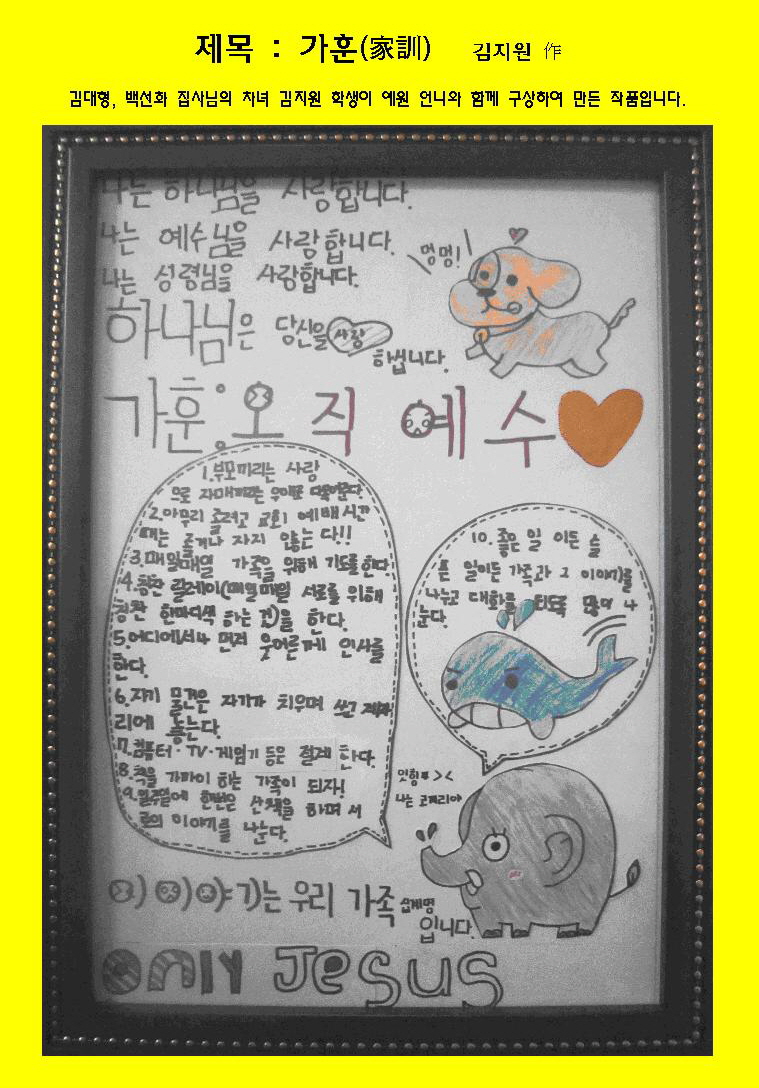 제목 : 가훈(家訓) 김지원 作
김대형, 백선화 집사님의 차녀 김지원 학생이 예원 언니와 함께 구상하여 만든 작품입니다.
나는 하나님을 사랑합니다.
나는 예수님을 사랑합니다.
나는 성령님을 사랑합니다.
하나님은 당신을 사랑
하십니다.
멍멍!
가훈:오 직 예 수
1.부모끼리는 사랑
으로 자매끼리는 우애로
2.아무리 졸려고 교회 예배시간
때는 졸거나 자지 않는다!!
3.매일매일 가족을 위해 기도를 한다.
4.칭찬 릴레이(매일매일 서로를 위해
칭찬 한마디씩 하는 것)을 한다.
5.어디에서나 먼저 웃어른께 인사를
한다.
6.자기 물건은 자기가 치우며 쓰고 제자
리에 놓는다.
7.컴퓨터·TV·게임기 등은 절제 한다.
8.책을 가까이 하는 가족이 되자!
9.일주일에 한번은 산책을 하며 서
로의 이야기를 나눈다.
10.좋은 일 이든 슬
픈 일이든 가족과 그 이야기를
나누고 대화를 되도록 많이 나
눈다.
나는 코끼리야
는 우리 가족 십계명
입니다.
only Jesus